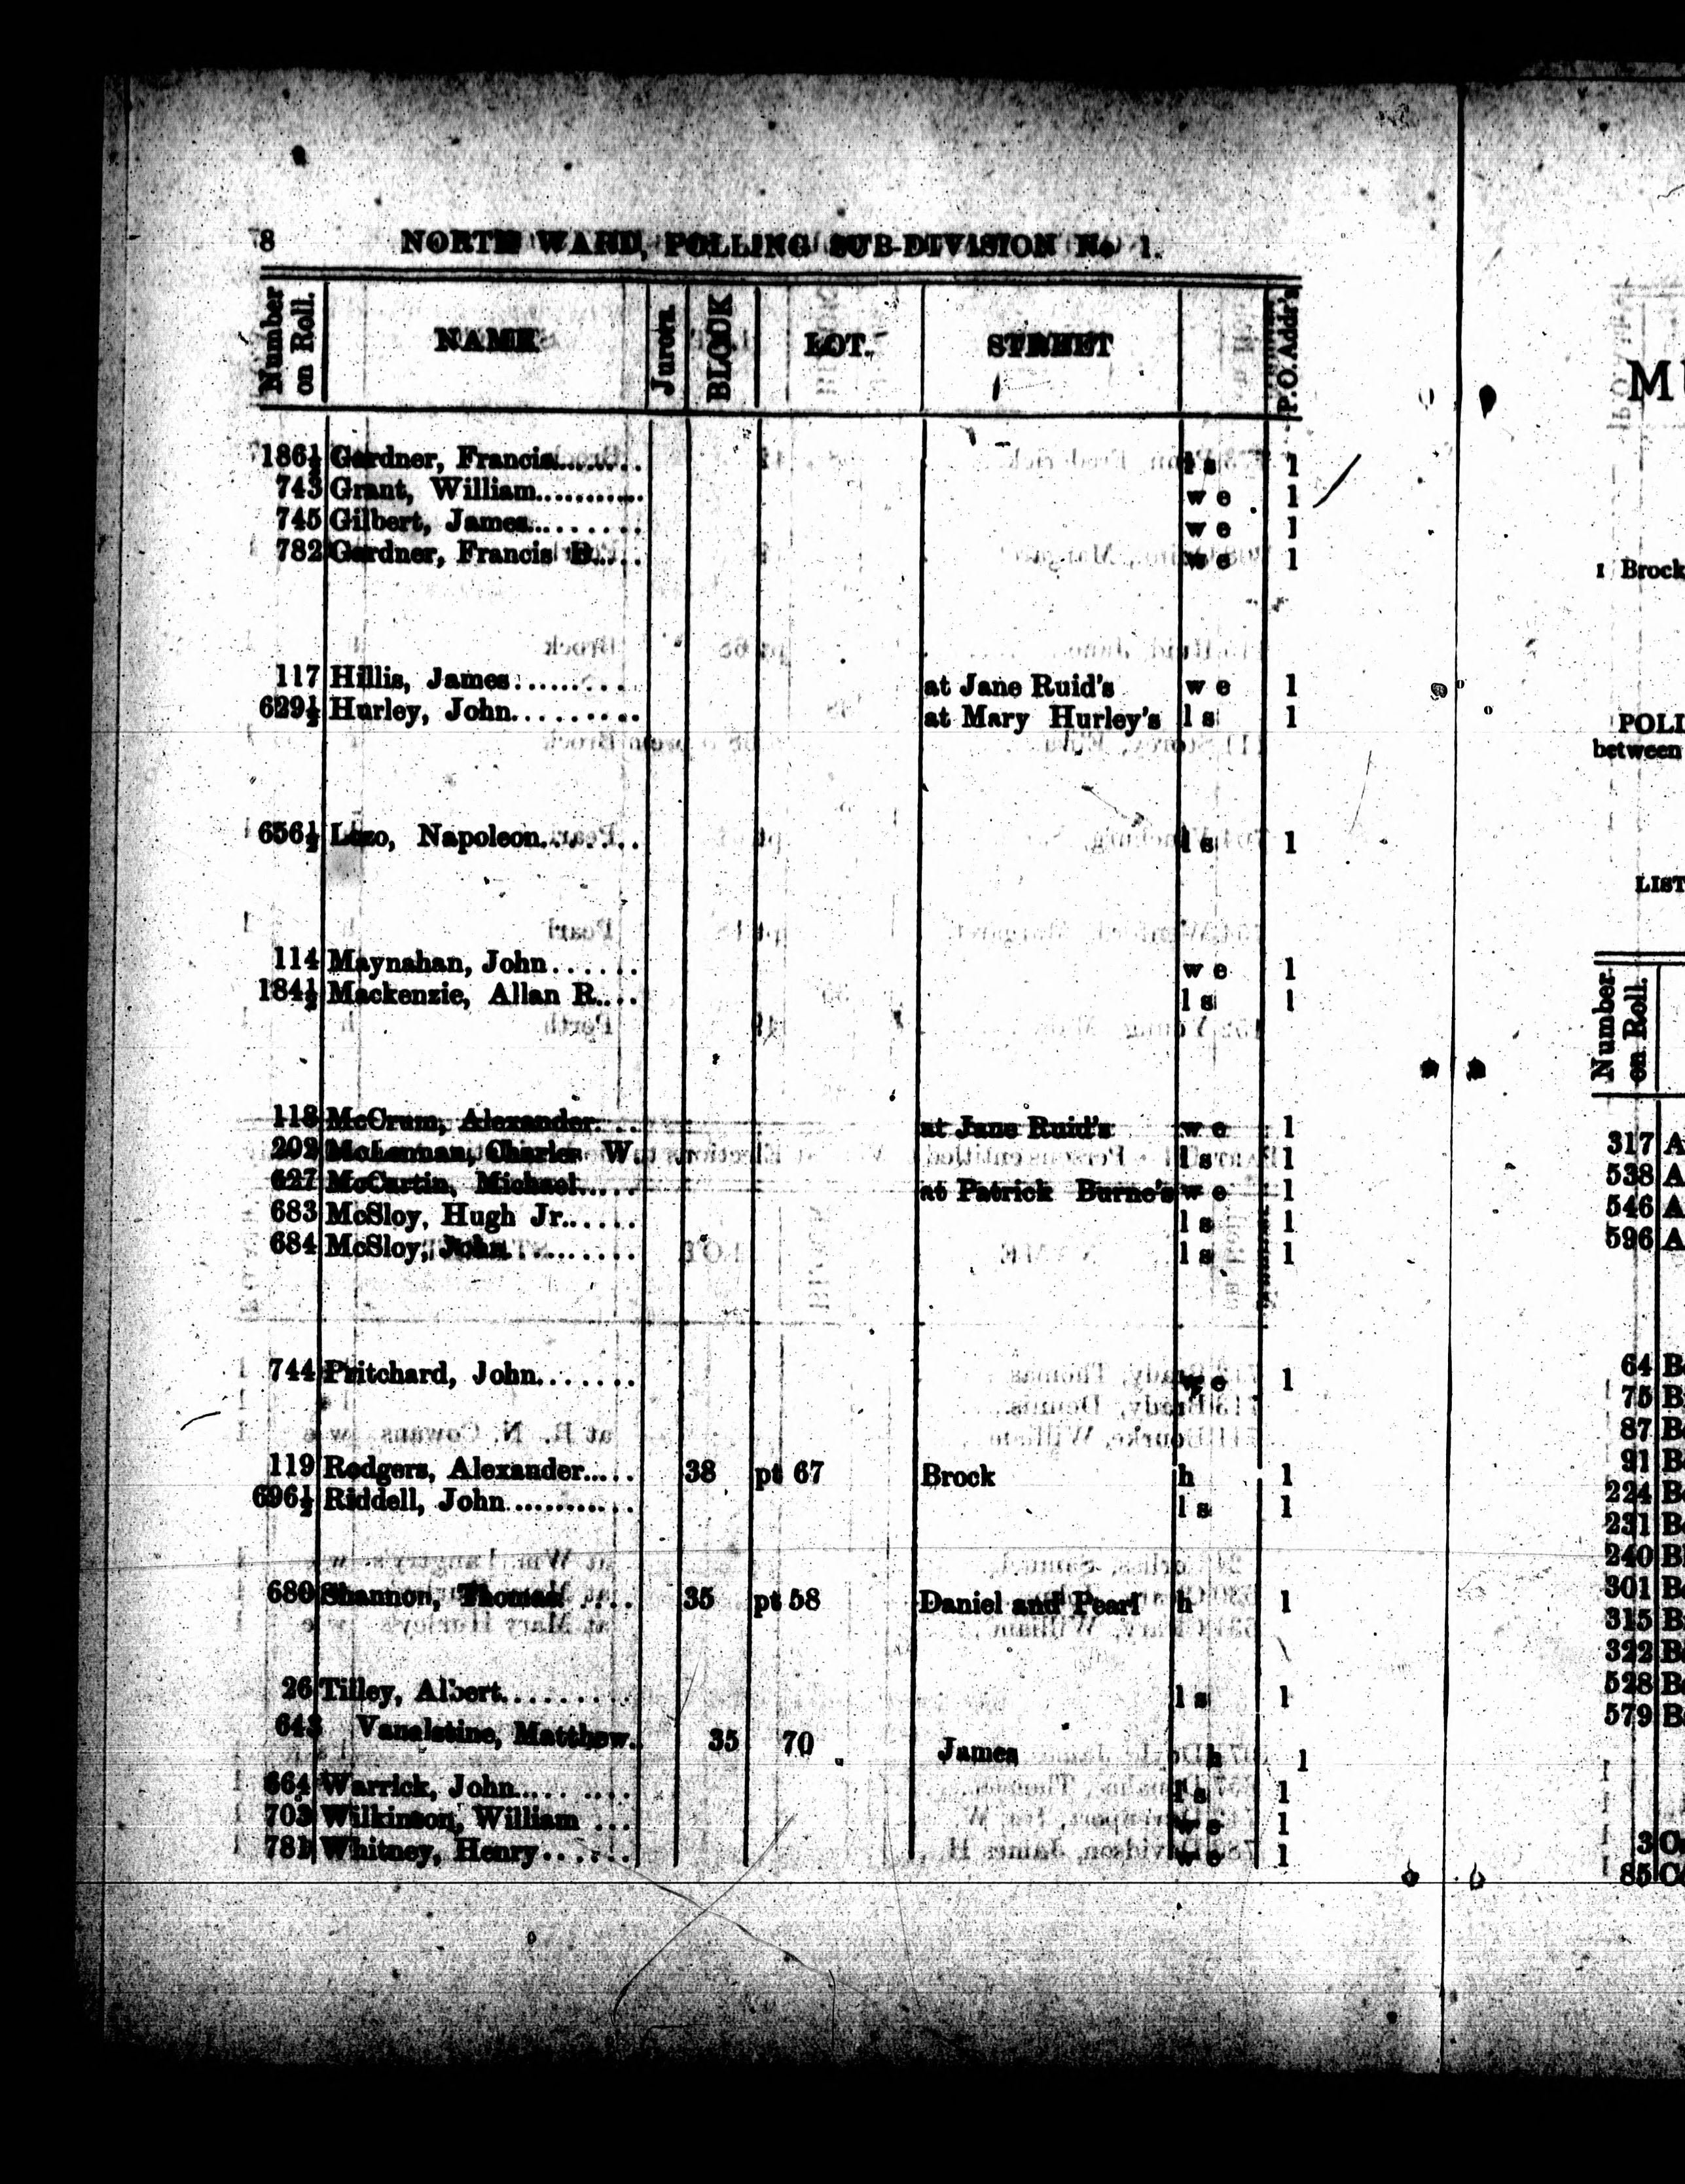 8 NORTH WARD, POLLING SUB-DIVISION No 1.
Number on Roll. NAME Jurors. BLOCK LOT. STREET P.O. Addr's
186½ Gardner, Francis........ l s 1
743 Grant, William........... w e 1
745 Gilbert, James......... w e 1
782 Gardner, Francis B..... w e 1
117 Hillis, James......... at Jane Ruid's w e 1
629½ Hurley, John......... at Mary Hurley's l s 1
656½ Lezo, Napoleon........ l s 1
114 Maynahan, John...... w e 1
184½ Mackenzie, Allan R.... l s 1
118 McCrum, Alexander.... at Jane Ruid's w e 1
202 McLennan, Charles W. l s 1
627 McCartin, Michael..... at Patrick Burne's w e 1
683 McSloy, Hugh Jr...... l s 1
684 McSloy, John.......... l s 1
744 Pritchard, John....... w e 1
119 Rodgers, Alexander..... 38 pt 67 Brock h 1
696½ Riddell, John........... l s 1
680 Shannon, Thomas .... 35 pt 58 Daniel and Pearl h 1
26 Tilley, Albert......... l s 1
643 Vanalstine, Matthew.. 35 70 James h 1
664 Warrick, John......... l s 1
703 Wilkinson, William ... w e 1
781 Whitney, Henry...... w e 1
MU
1 Brock
POLL
between
LIST
Number on Roll.
317 A
538 A
546 A
596 A
64 B
75 B
87 B
91 B
224 B
231 B
240 Bl
301 B
315 B
322 B
528 B
579 B
3 C
85 C